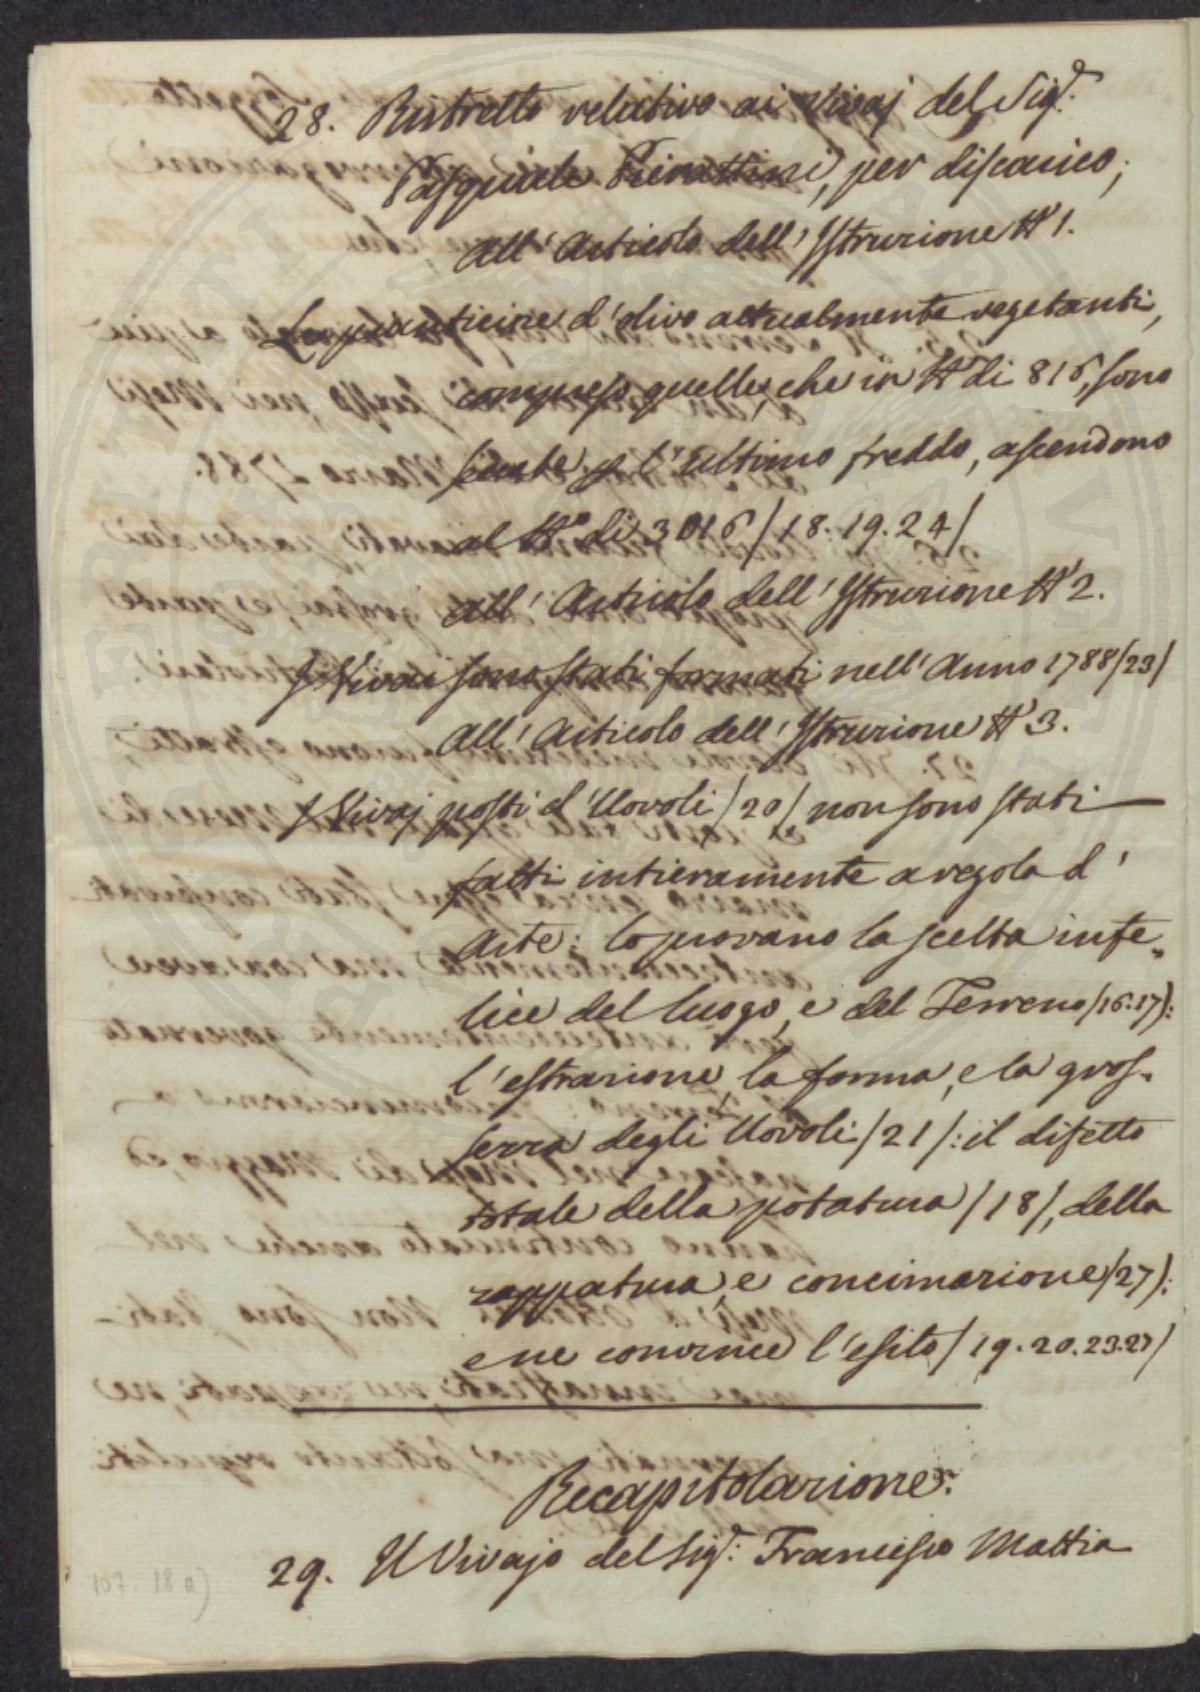 28. Ristretto relativo ai Vivaj del Sig.r
Pasquale Pierattini, per discarico;
all' Articolo dell' Istruzione N.° 1.
Le pianticine d'olivo attualmente vegetanti,
compreso quelle, che in N.° di 816, sono
l'ultimo freddo, ascendono
al N.° di 3016 /18. 19. 24/
all' Articolo dell' Istruzione N.° 2.
I Vivai sono stati formati nell' Anno 1788 /23/
all' Articolo dell' Istruzione N.° 3.
I Vivaj posti d'Uovoli /20/ non sono stati
fatti intieramente a regola d'
arte: lo provano la scelta infe„
lice del luogo, e del Terreno /16. 17/:
l'estrazione, la forma, e la gros„
sezza degli Uovoli /21/: il difetto
totale della potatura /18/, della
zappatura, e concimazione /27/:
e ne convince l'esito /19. 20. 23. 27/
Recapitolazione.
29. Il Vivajo del Sig.r Francesco Mattia
107. 18 a)